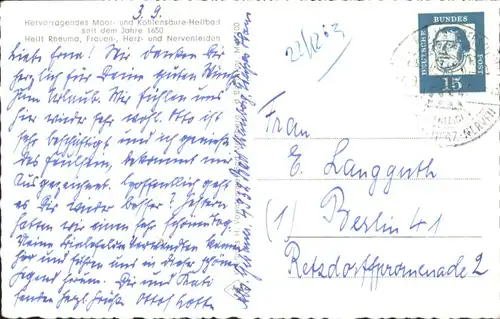 3. 9.
Hervorragendes Moor- und Kohlensäure-Heilbad
seit dem Jahre 1650
Heilt Rheuma, Frauen-, Herz- und Nervenleiden
Liebe Erna! Wir danken Dir
herzlich für Deine guten Wünsche
zum Urlaub. Wir fühlen uns
hier wieder sehr wohl. Otto ist
sehr beschäftigt und ich genieße
das Faulsein, bekommt mir
ausgezeichnet. Hoffentlich geht
es Dir wieder besser? Gestern
hatten wir einen sehr schönen Tag.
Meine Bielefelder Verwandten kamen
her und fuhren uns in dieser schönen
Gegend herum. Dir und
senden herzl. Grüße Ottos Lotte
22/12 63
DEUTSCHE BUNDESPOST
15
Frau
E. Langguth
(1) Berlin 41
Retzdorffpromenade 2